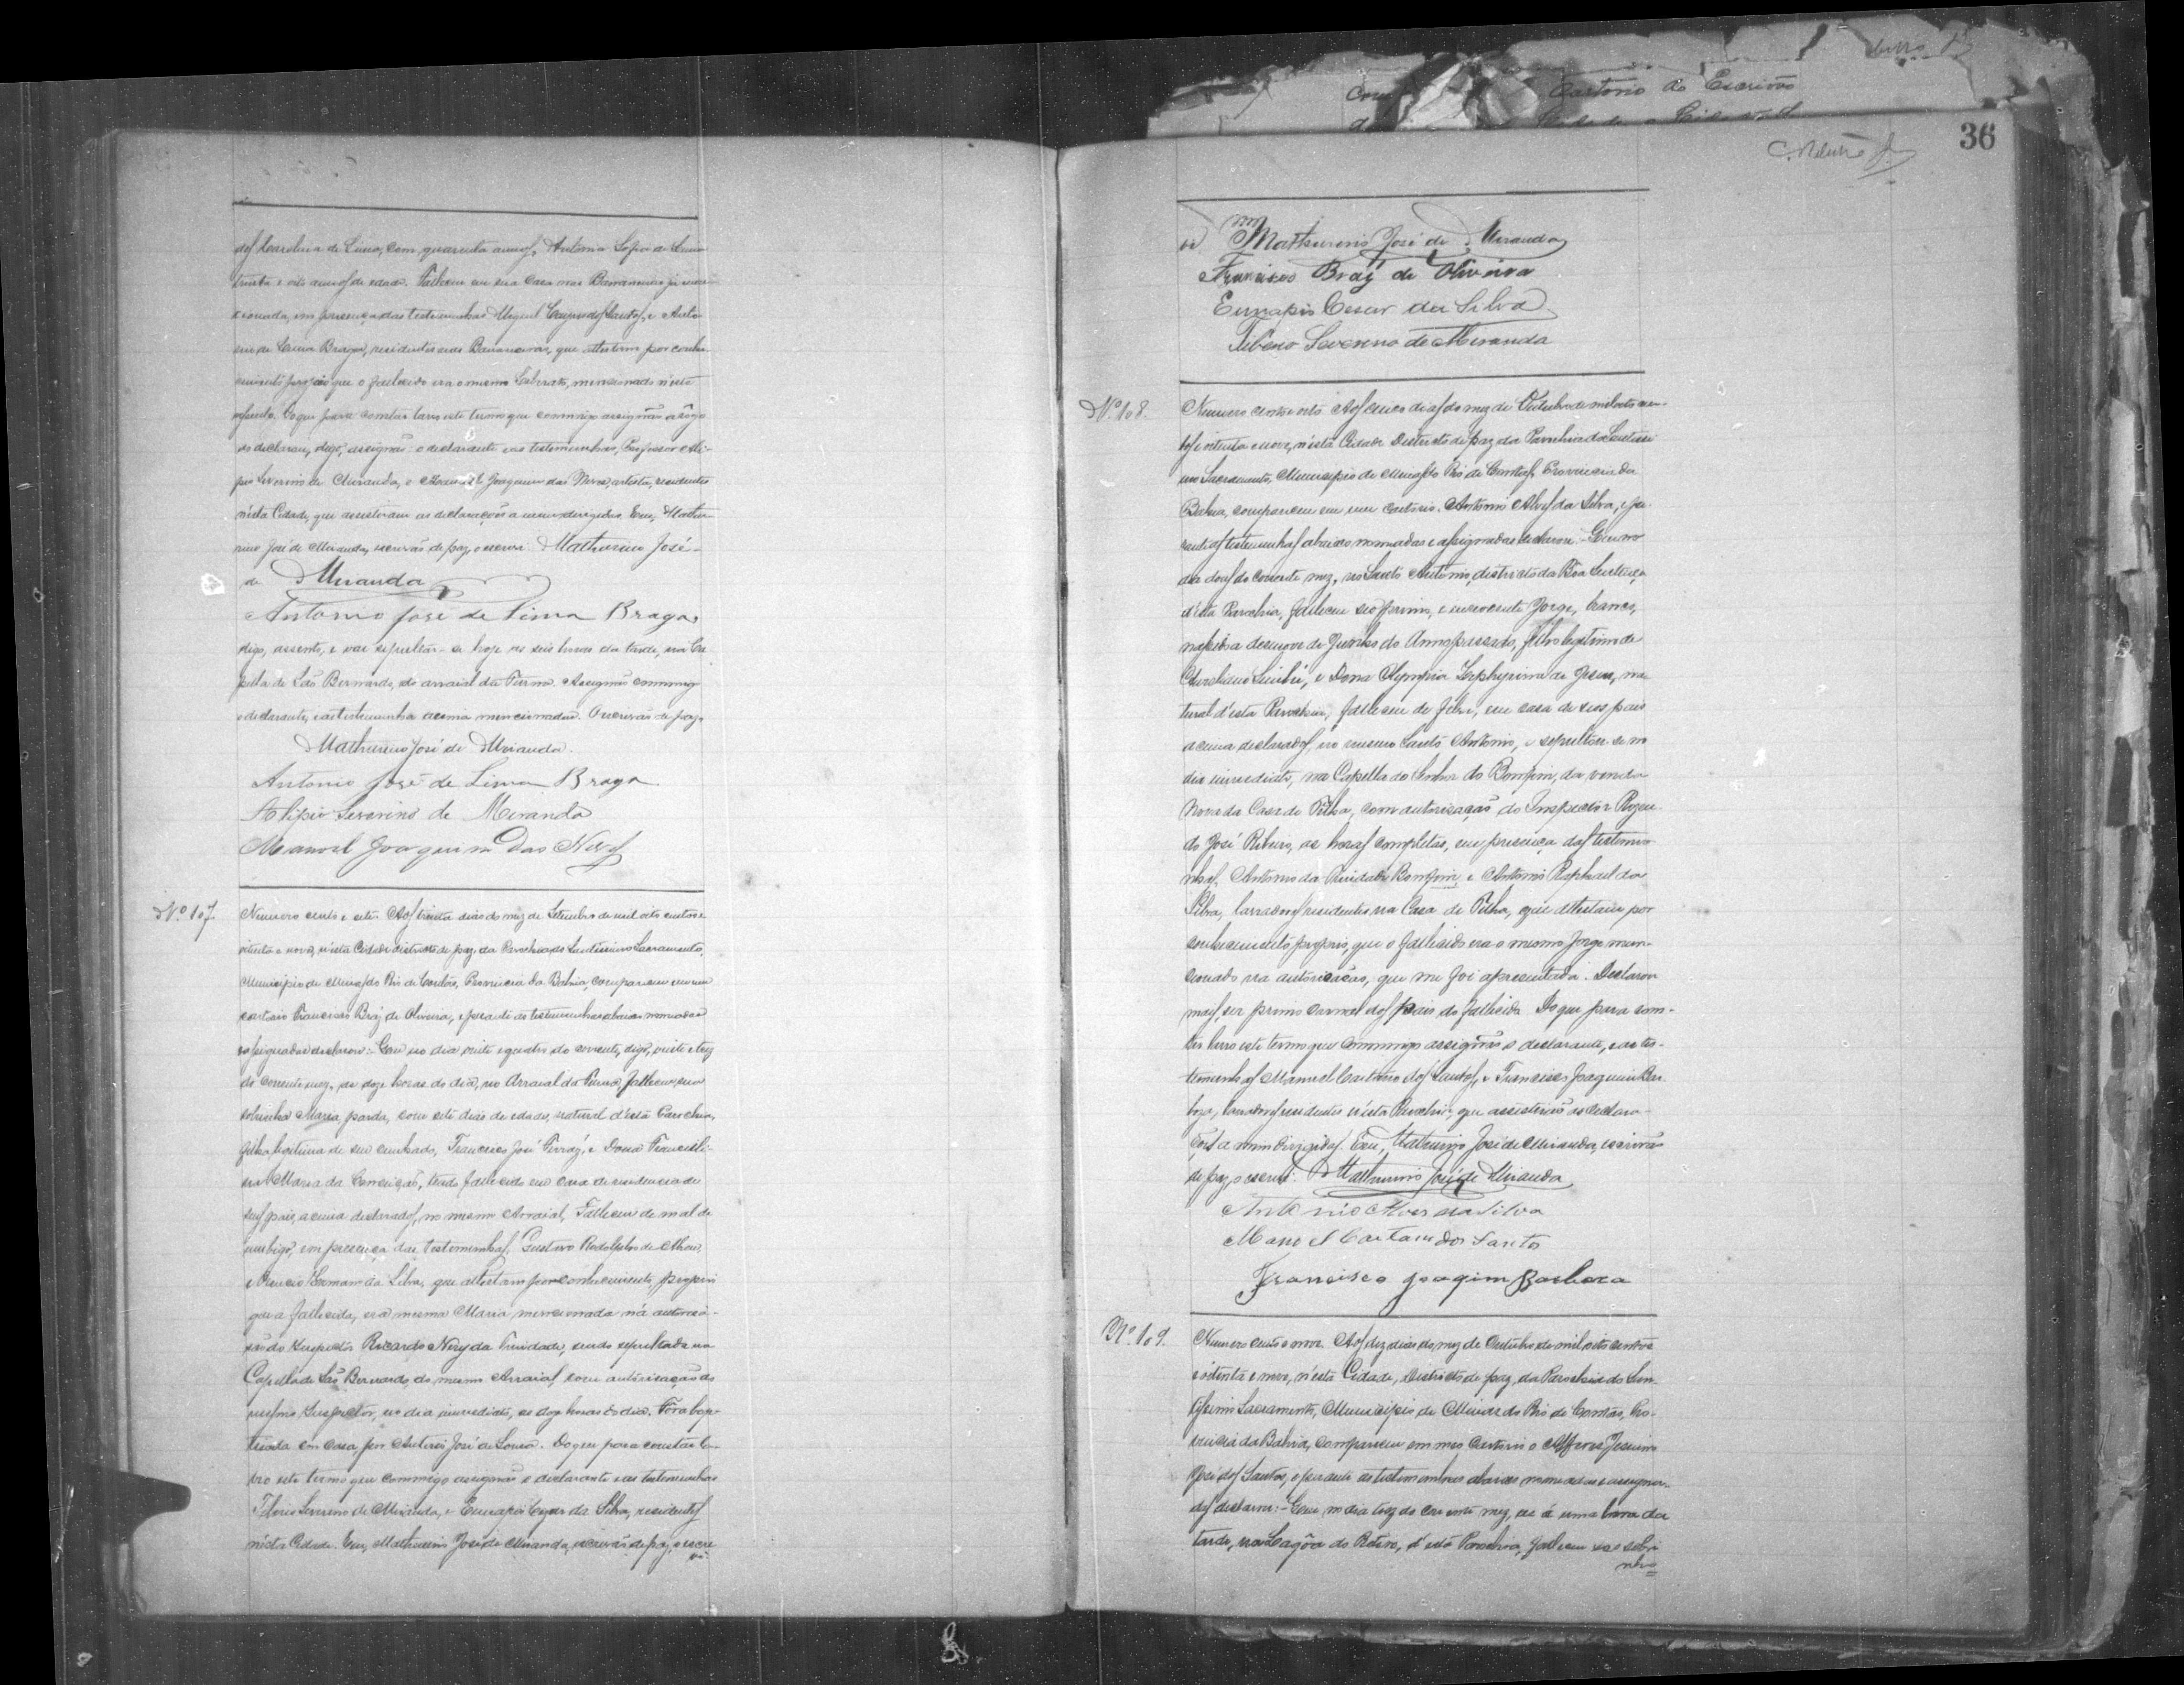 Carolina de Lima, com quarenta annos, Antonia Sofia de Lima
trinta e oito annos de edade. Falleceu em sua Casa nas Bananeiras já men-
cionada, em presença das testemunhas Miguel dos Santos, e Anto-
nio de Lima Braga, residentes nas Bananeiras, que attestam por conhe-
cimento proprio que o fallecido era o mesmo mencionado n'este
Do que para constar lavro este termo que commigo assignão a rogo
do declaran, digo, assignão o declarante e as testemunhas, Professor Ali-
pio Severino de Miranda, e Manoel Joaquim das Neves, artista, residentes
n'esta Cidade, que assistiram as declarações a mim dirigidas. Eu, Mathu-
rino José de Miranda, escrivão de paz, o escrevi. Mathurino José
de Miranda
Antonio José de Lima Braga
digo, assento, e vae sepultar-se hoje as seis horas da tarde, na Ca-
pella de São Bernardo, do arraial da Furna. Assignão commigo
o declarante, e as testemunhas acima mencionadas. O escrivão de paz
Mathurino José de Miranda.
Antonio José de Lima Braga
Alipio Severino de Miranda
Manoel Joaquim Das Neves
Nº 107.
Numero cento e sete. Aos trinta dias do mez de Setembro de mil oito centos e
oitenta e nove, n'esta Cidade districto de paz, da Parochia do Santissimo Sacramento,
Municipio de Minas do Rio de Contas, Provincia da Bahia, compareceu em meu
cartorio Francisco Braz de Oliveira, e perante as testemunhas abaixo nomeadas
e assignadas declarou: Que no dia vinte e quatro do corrente, digo, vinte e trez
do corrente mez, as doze horas do dia, no Arraial da Furna, falleceu sua
sobrinha Maria, parda, com sete dias de edade, natural d'esta Parochia,
filha legitima de seu cunhado, Francisco José Ferraz, e Dona Francelli-
na Maria da Conceição, tendo fallecido em casa de residencia de
seus pais, acima declarados, no mesmo Arraial, Falleceu de mal de
umbigo, em presença das testemunhas, Gustavo Rodolpho de
e da Silva, que attestam por conhecimento proprio
que a fallecida, era a mesma Maria mencionada na autorisa-
ção do Inspector Ricardo Nery da Trindade, sendo sepultada na
Capella de São Bernardo, do mesmo Arraial, com autorisação do
mesmo Inspector, no dia immediato, as doze horas do dia. Fora bap-
tisada em casa por Antonio José de Sousa. Do que para constar la-
vro este termo que commigo assignão o declarante e as testemunhas
Tiberio Severino de Miranda, e Eunapio Cezar da Silva, residentes
n'esta Cidade. Eu, Mathurino José de Miranda, escrivão de paz, o escre
vi
36
vi Mathurino José de Miranda
Francisco Braz de Oliveira
Eunapio Cesar da Silva
Tiberio Severino de Miranda
Nº 108.
Numero cento e oito. Aos cinco dias do mez de Outubro de mil oito cen-
tos e oitenta e nove, n'esta Cidade Districto de paz da Parochia do Santissi-
mo Sacramento, Municipio de Minas do Rio de Contas, Provincia da
Bahia, compareceu em meu cartorio. Antonio Alves da Silva, e pe-
rante as testemunhas abaixo nomeadas e assignadas declarou: Que no
dia dous do corrente mez, no Santo Antonio, districto da Boa Sentença
d'esta Parochia, falleceu seo primo, e innocente Jorge, branco,
nascido a desenove de Junho do Anno passado, filho legitimo de
Aureliano , e Dona Olympia Zephyrina de Jesus, na-
tural d'esta Parochia, falleceu de febre, em casa de seos pais
acima declarados, no mesmo Santo Antonio, e sepultou-se no
dia immediato, na Capella do Senhor do Bomfim, da venda
Nova da Casa de Telha, com autorisação do Inspector
do José Ribeiro, as horas completas, em presença das testemu-
nhas, Antonio da Trindade Bomfim, e Antonio Raphael da
Silva, lavradores residentes na Casa de Telha, que attestam por
conhecimento proprio, que o fallecido era o mesmo Jorge men-
cionado na autorisação, que me foi apresentada. Declarou
mais, ser primo carnal dos pais do fallecido. Do que para cons-
tar lavro este termo que commigo assignão o declarante, e as tes-
temunhas Manoel Caetano dos Santos, e Francisco Joaquim Bar-
boza, lavradores residentes n'esta Parochia, que assistirão as declara-
ções a mim dirigidas. Eu, Mathurino José de Miranda, escrivão
de paz, o escrevi. Mathurino José de Miranda
Antonio Alves da Silva
Manoel Caetano dos Santos
Francisco Joaqim Barboza
Nº 109.
Numero cento e nove. Aos dez dias do mez de Outubro de mil oito centos
e oitenta e nove, n'esta Cidade, Districto de paz, da Parochia do San-
tissimo Sacramento, Municipio de Minas do Rio de Contas, Pro-
vincia da Bahia, compareceu em meu Cartorio o Alferes Jesuino
José dos Santos, e perante as testemunhas abaixo nomeadas e assigna-
das declarou: Que no dia trez do corrente mez, as á uma hora da
tarde, na Lagôa do Retiro, d'esta Parochia, falleceu seo sobri
nho